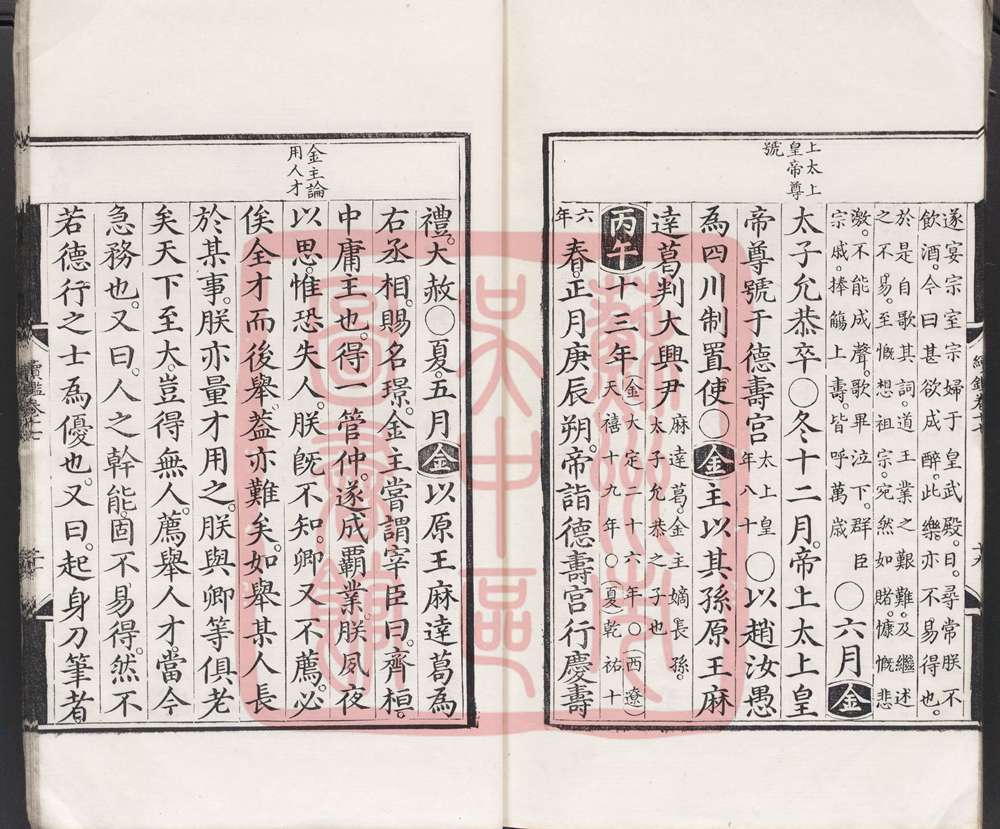 上太上
皇帝尊
號
遂宴宗室宗婦于皇武殿。曰。尋常朕不
飲酒。今日甚欲成醉。此樂亦不易得也。
於是自歌其詞。道王業之艱難。及繼述
之不易。至慨想祖宗。宛然如睹。慷慨悲
激。不能成聲。歌畢泣下。群臣
宗戚。捧觴上壽。皆呼萬歲
○六月金
太子允恭卒○冬十二月。帝上太上皇
帝尊號于德壽宮太上皇年八十○以趙汝愚
為四川制置使○金主以其孫原王麻
達葛判大興尹麻達葛。金主嫡長孫。太子允恭之子也
丙午十三年(金)大定二十六年○(西遼)天禧十九年○(夏)乾祐十
六年春。正月庚辰朔。帝詣德壽宮行慶壽
金主論
用人才
禮。大赦○夏。五月金以原王麻達葛為
右丞相。賜名璟。金主嘗謂宰臣曰。齊桓。
中庸主也。得一管仲。遂成霸業。朕夙夜
以思。惟恐失人。朕既不知。卿又不薦。必
俟全才而後舉。蓋亦難矣。如舉某人長
於某事。朕亦量才用之。朕與卿等俱老
矣。天下至大。豈得無人。薦舉人才。當今
急務也。又曰。人之幹能。固不易得。然不
若德行之士為優也。又曰。起身刀筆者
續鑑卷十七
蘇州市
吳中區
圖書館